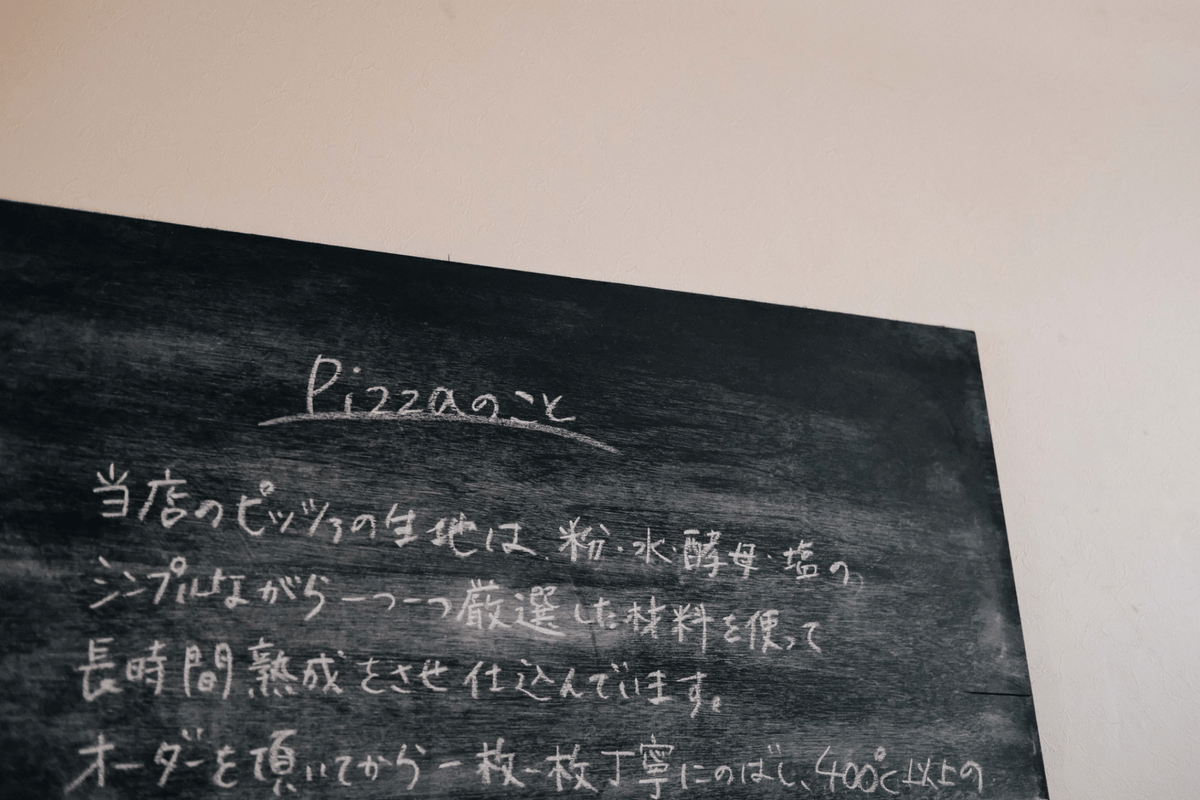 Pizzaのこと
当店のピッツァの生地は、粉・水・酵母・塩の、
シンプルながら一つ一つ厳選した材料を使って
長時間熟成をさせ仕込んでいます。
オーダーを頂いてから一枚一枚丁寧にのばし、400℃以上の